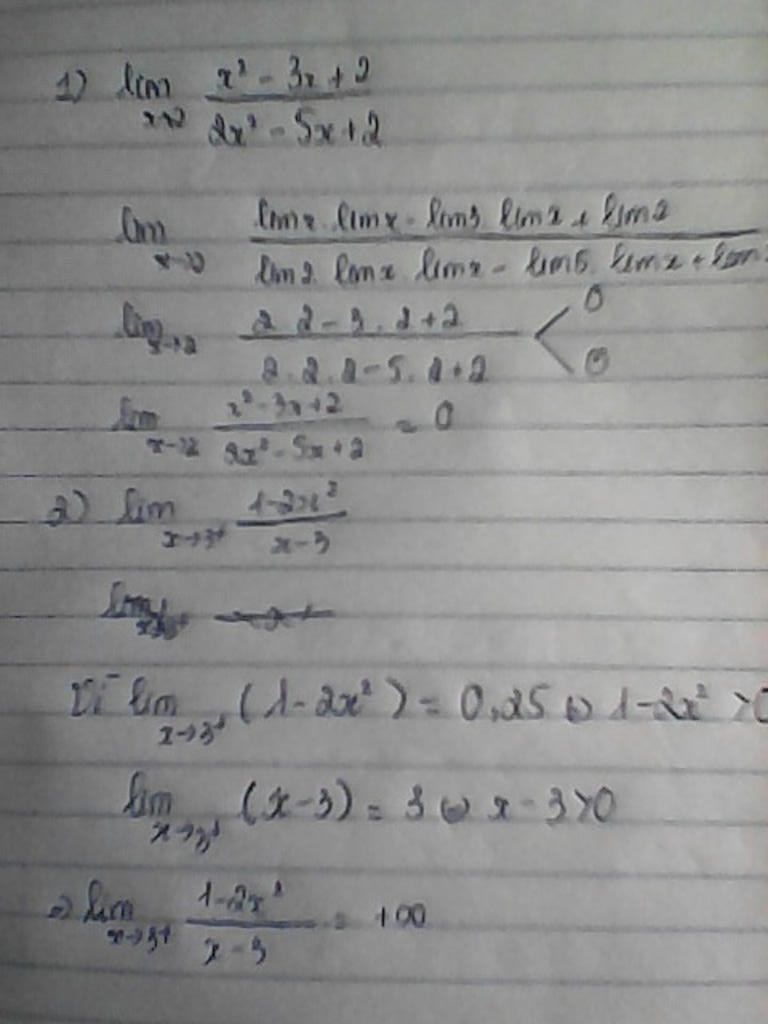 1) lim x→2 (x² - 3x + 2)/(2x² - 5x + 2)
lim x→2 (lim x . lim x - lim 3 . lim x + lim 2)/(lim 2 . lim x . lim x - lim 5 . lim x + lim
lim x→2 (2 . 2 - 3 . 2 + 2)/(2 . 2 . 2 - 5 . 2 + 2) < 0 0
lim x→2 (x² - 3x + 2)/(2x² - 5x + 2) = 0
2) lim x→3⁺ (1 - 2x²)/(x - 3)
Vì lim x→3⁺ (1 - 2x²) = 0,25 1 - 2x² > 0
lim x→3⁺ (x - 3) = 3 x - 3 > 0
⇒ lim x→3⁺ (1 - 2x²)/(x - 3) = +∞